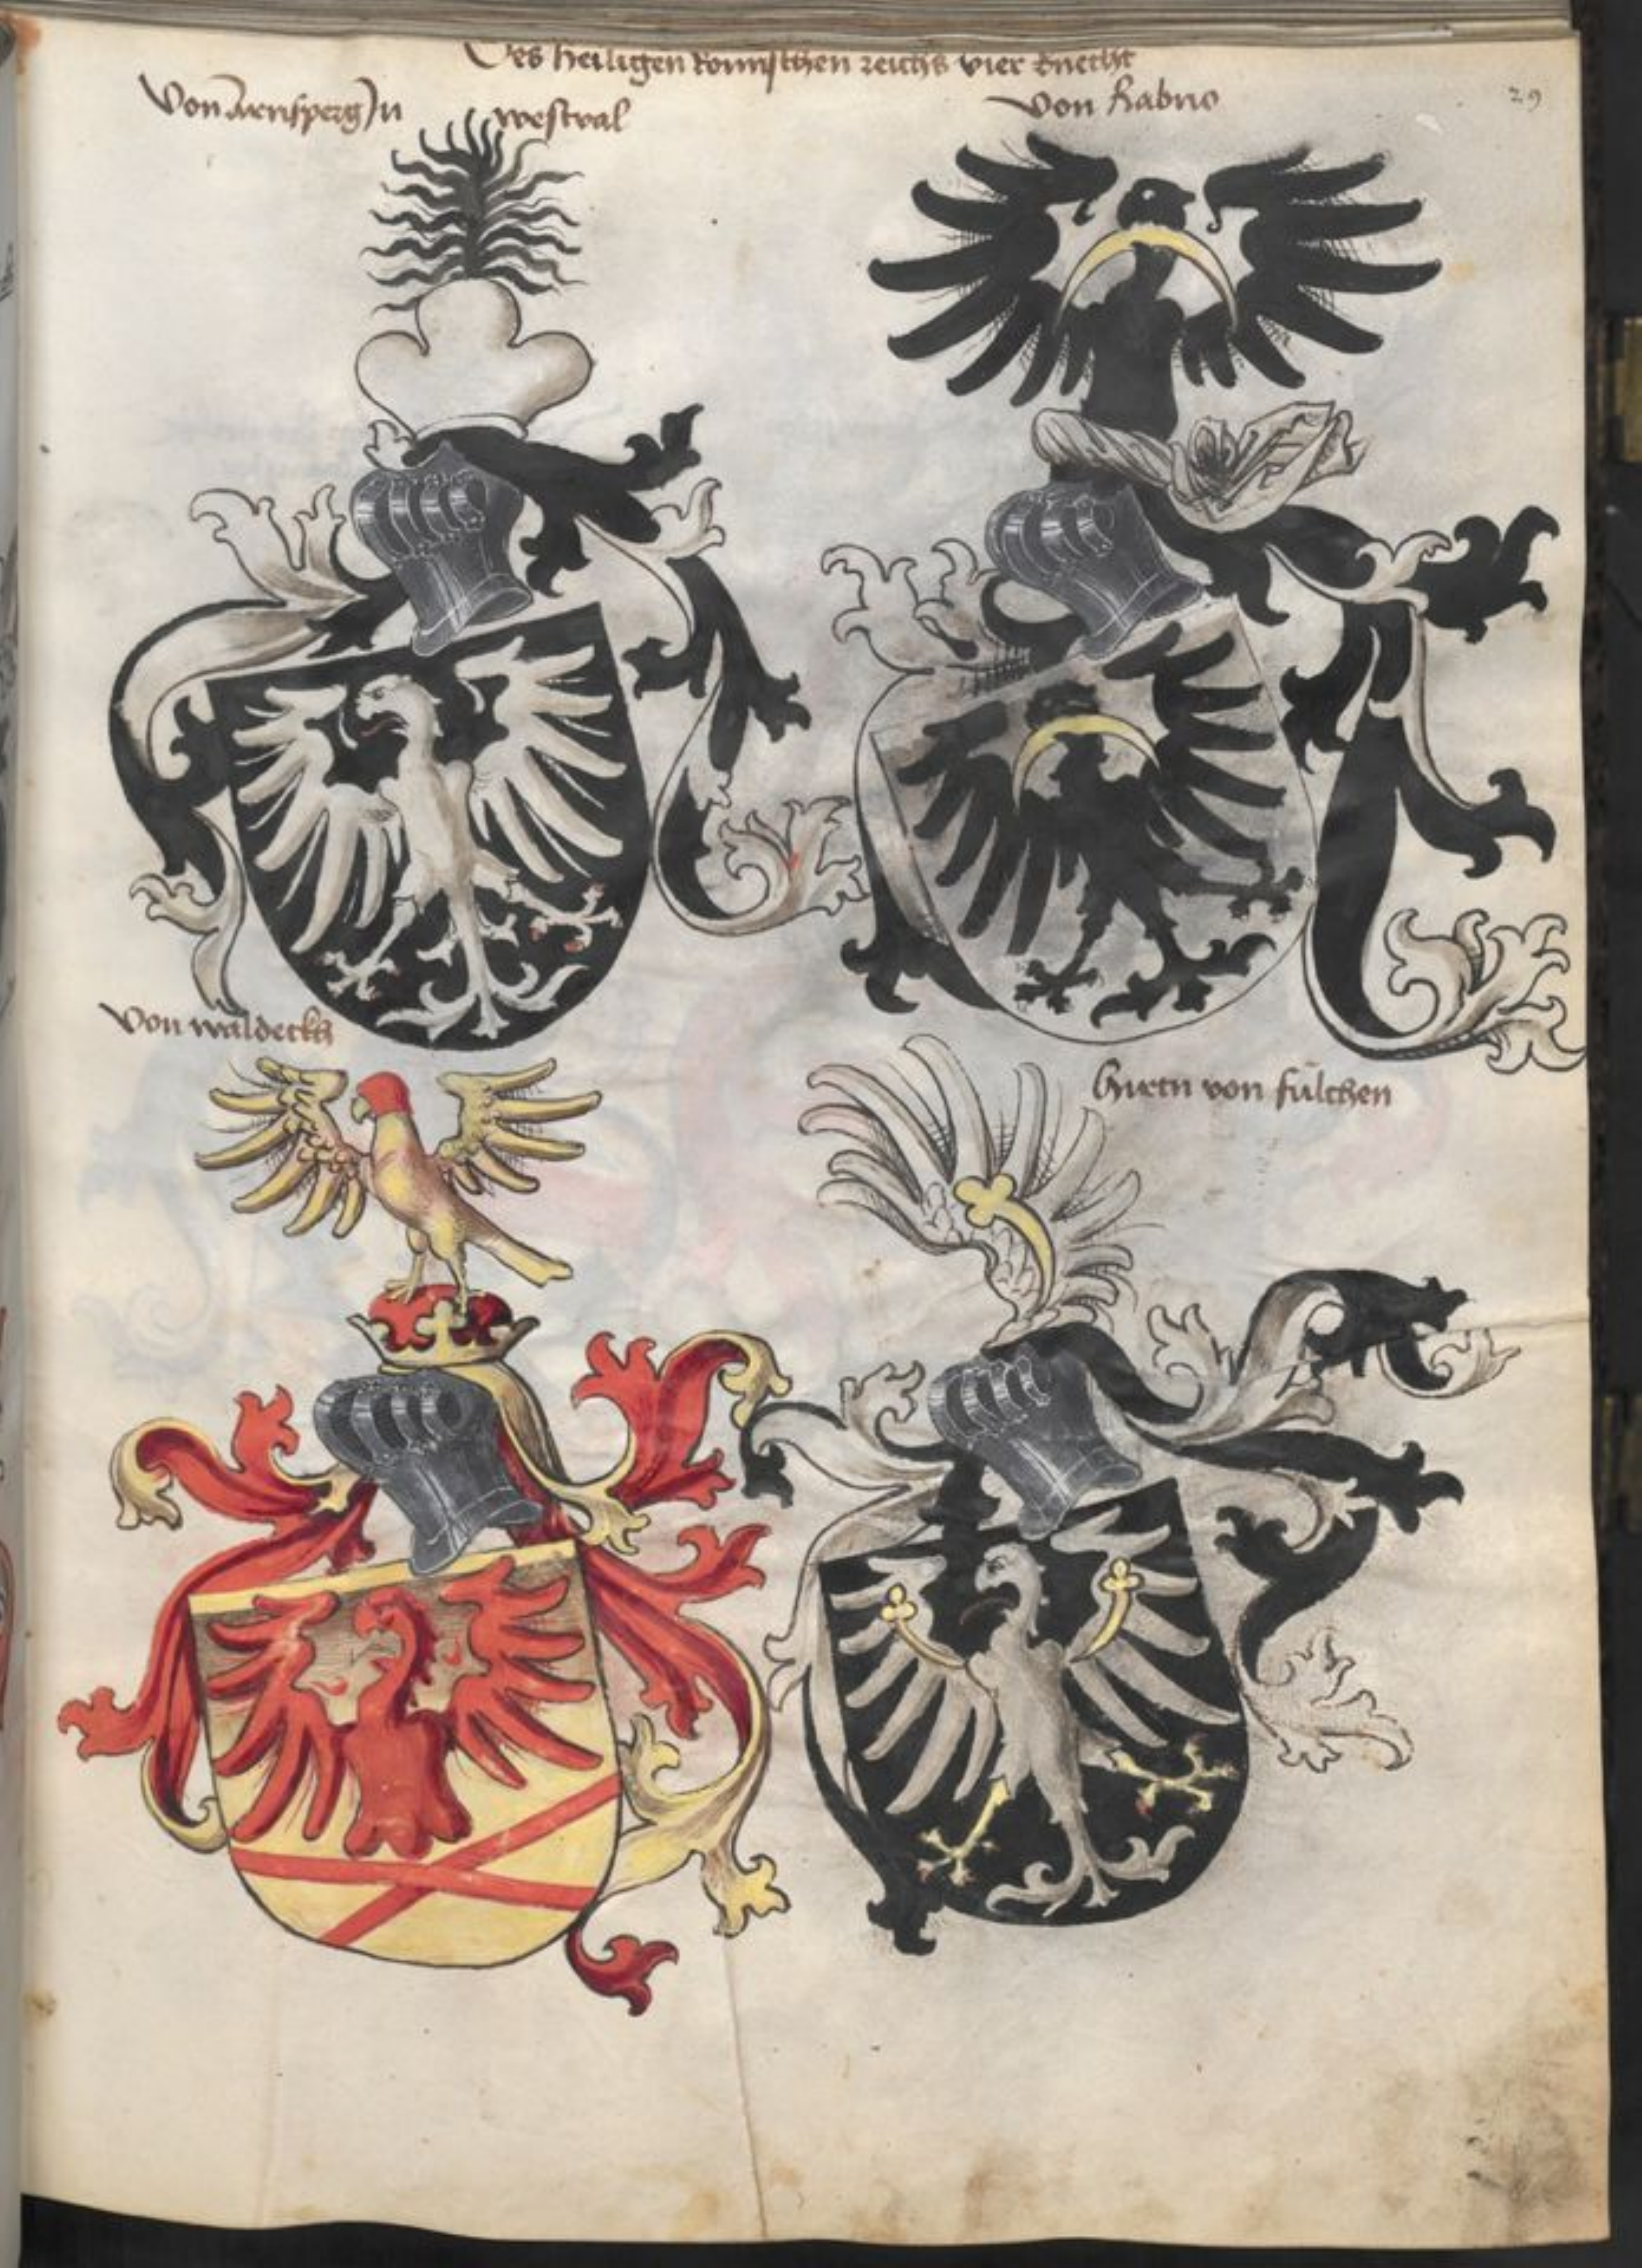 Des heiligen Romischen reichs vier knecht
29
Von Arnsperg In westval
Von Rabno
Von waldeckh
Hirtn von fulchen